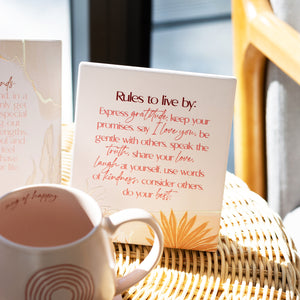 Rules to live by:
Express gratitude, keep your
promises, say I love you, be
gentle with others, speak the
truth, share your love,
laugh at yourself, use words
of kindness, consider others,
do your best.
ends,
and, in a
only get
special
g out
engths,
oul and
feel
have
life.
mug of happy